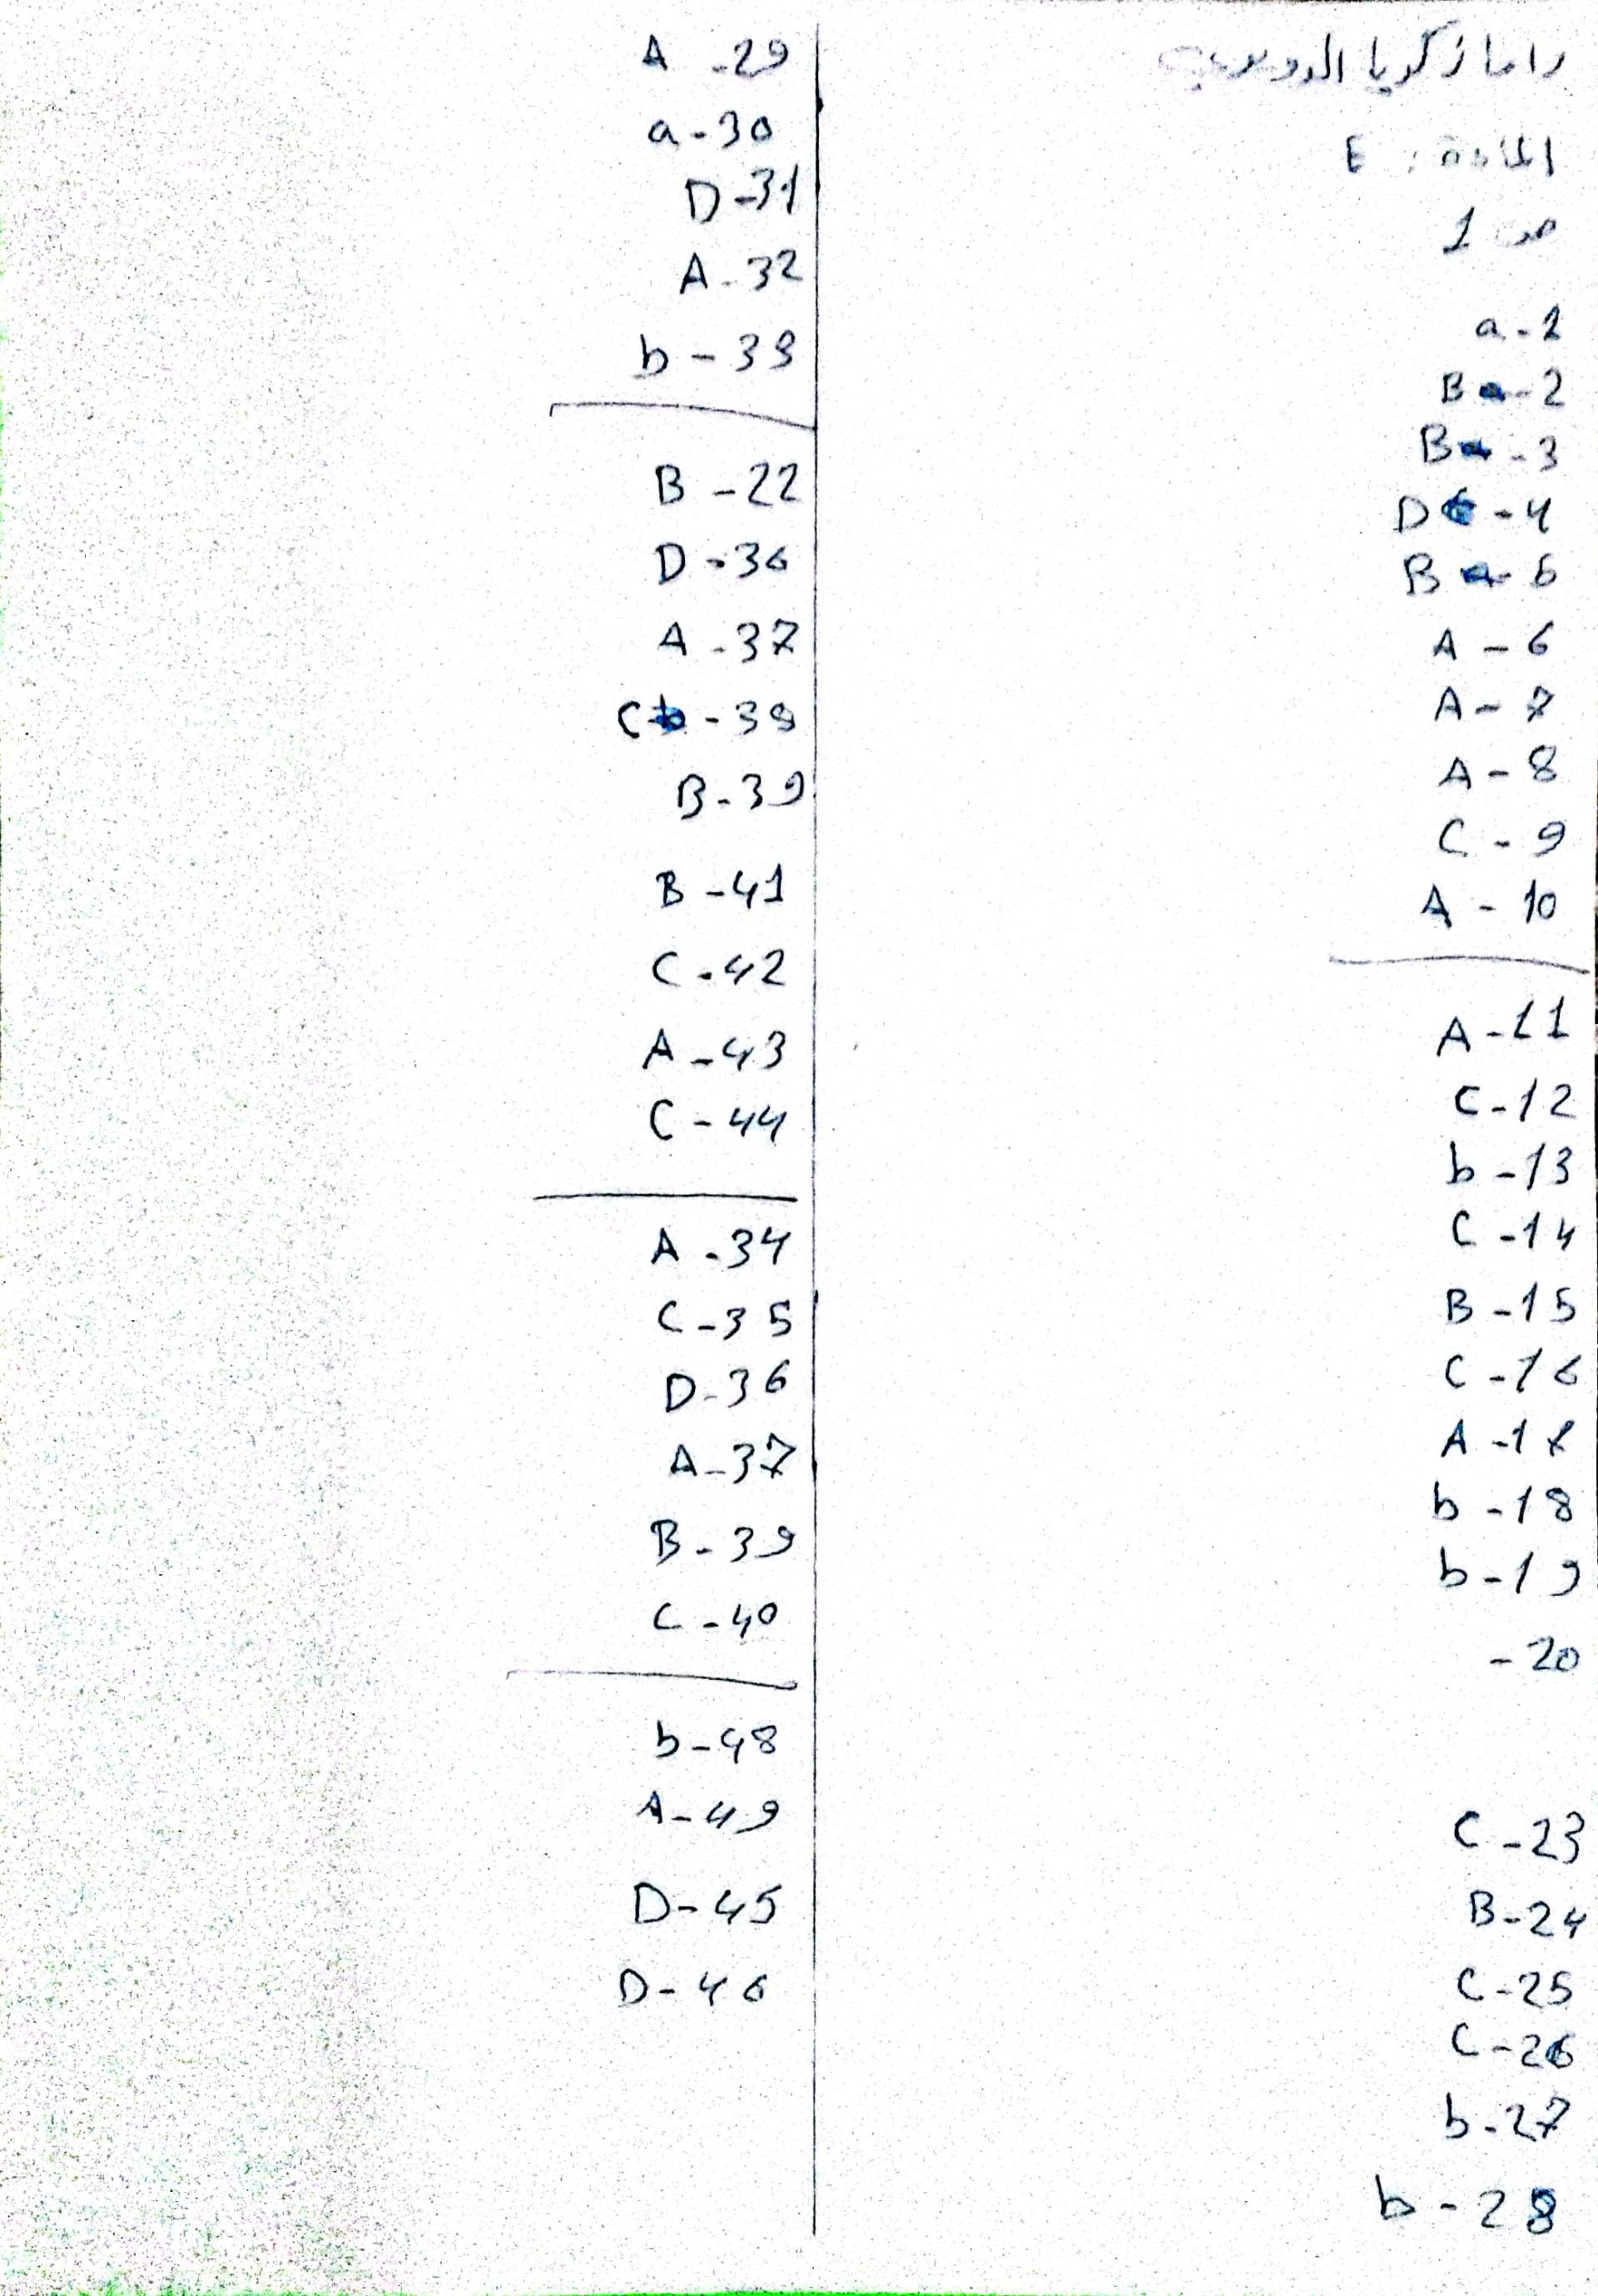 راما زكريا
المادة : E
ص 1
a - 1
B - 2
B - 3
D - 4
B - 5
A - 6
A - 7
A - 8
C - 9
A - 10
A - 11
C - 12
b - 13
C - 14
B - 15
C - 16
A - 17
b - 18
b - 19
- 20
C - 23
B - 24
C - 25
C - 26
b - 27
b - 28
A - 29
a - 30
D - 31
A - 32
b - 33
B - 22
D - 36
A - 37
C - 38
B - 39
B - 41
C - 42
A - 43
C - 44
A - 34
C - 35
D - 36
A - 37
B - 39
C - 40
b - 48
A - 49
D - 45
D - 46